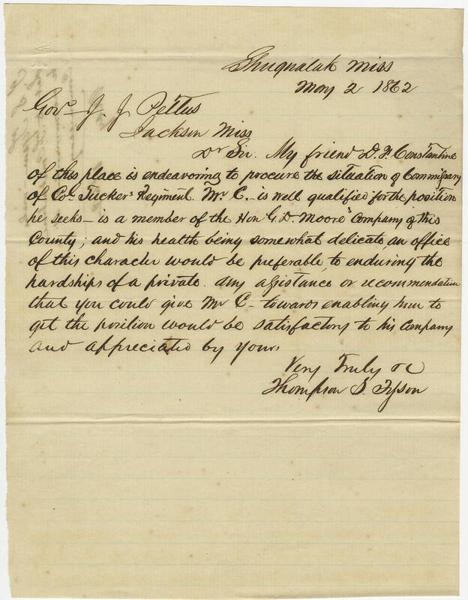 Shuqualak Miss
May 2 1862
Gov. J. J. Pettus
Jackson Miss
Dr Sir. My friend D. F. Constantine
of this place is endeavoring to procure the situation of Commissary
of Col Tuckers Regiment Mr C. is well qualified for the position
he seeks - is a member of the Hon G. D Moore Company of this
County; and his health being somewhat delicate an office
of this character would be preferable to enduring the
hardships of a private. Any assistance or recommendation
that you could give Mr C - towards enabling him to
get the position would be satisfactory to his Company
and appreciated by yours
Very Truly &c
Thompson S. Tyson